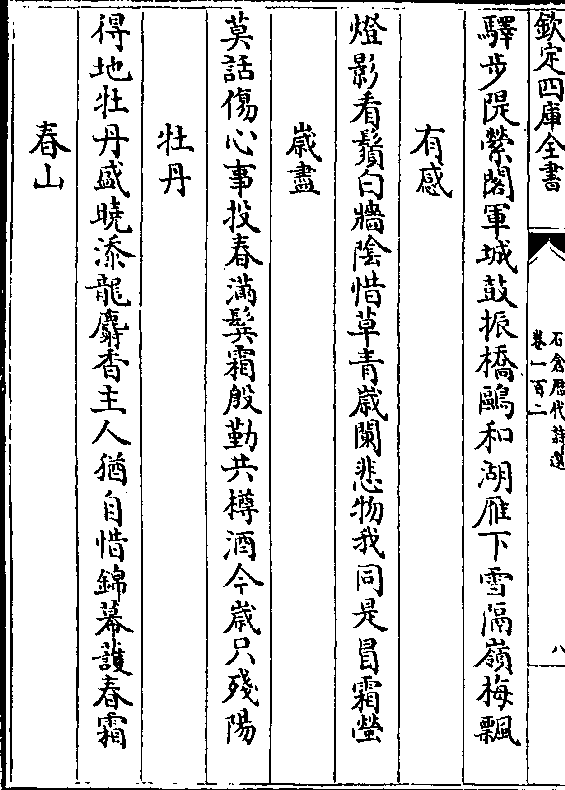 欽定四庫全書
石倉歴代詩選
卷一百二
八
驛步隄縈閣軍城鼓振橋鷗和湖雁下雪隔嶺梅飄
有感
燈影看鬚白牆陰惜草青歲闌悲物我同是冒霜螢
歲盡
莫話傷心事投春滿鬂霜殷勤共樽酒今歲只殘陽
牡丹
得地牡丹盛曉添龍麝香主人猶自惜錦幕護春霜
春山